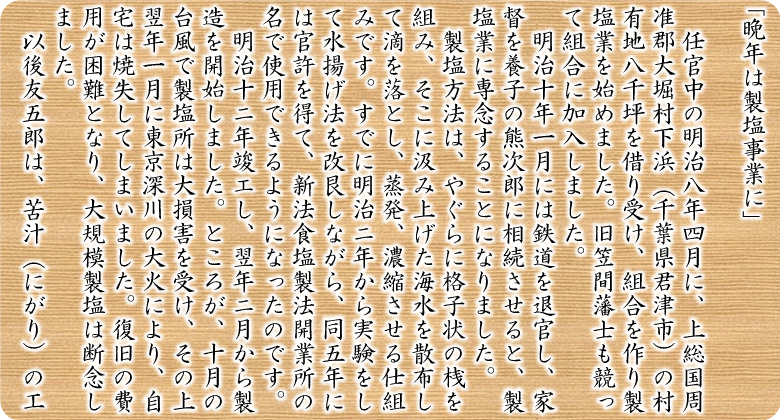 「晩年は製塩事業に」
任官中の明治八年四月に、上総国周
准郡大堀村下浜（千葉県君津市）の村
有地八千坪を借り受け、組合を作り製
塩業を始めました。旧笠間藩士も競っ
て組合に加入しました。
明治十年一月には鉄道を退官し、家
督を養子の熊次郎に相続させると、製
塩業に専念することになりました。
製塩方法は、やぐらに格子状の桟を
組み、そこに汲み上げた海水を散布し
て滴を落とし、蒸発、濃縮させる仕組
みです。すでに明治二年から実験をし
て水揚げ法を改良しながら、同五年に
は官許を得て、新法食塩製法開業所の
名で使用できるようになったのです。
明治十二年竣工し、翌年二月から製
造を開始しました。ところが、十月の
台風で製塩所は大損害を受け、その上
翌年一月に東京深川の大火により、自
宅は焼失してしまいました。復旧の費
用が困難となり、大規模製塩は断念し
ました。
以後友五郎は、苦汁（にがり）の工